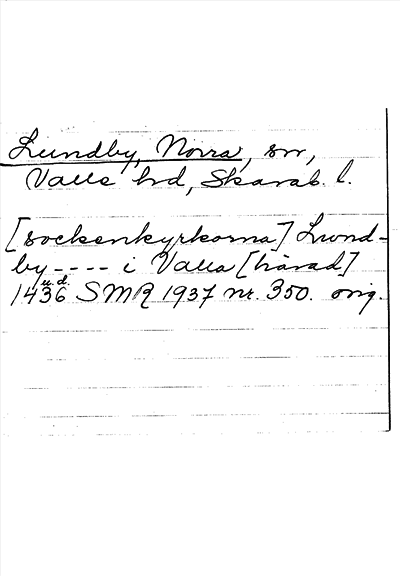 Lundby, Norra, sn,
Valle hd, Skarab. l.
[sockenkyrkorna] Lund-
by ---- i Valla [härad]
1436 u.d. SMR 1937 nr. 350. orig.